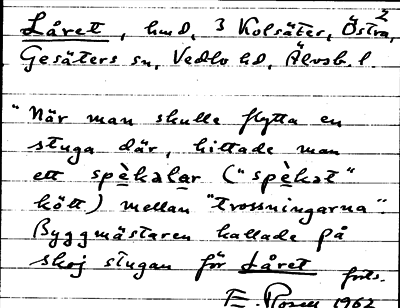 2
Låret, hmd, 3 Kolsäter, Östra,
Gesäters sn, Vedbo hd, Älvsb. l.
"När man skulle flytta en
stuga där, hittade man
ett spèkalar ("spèkat"
kött) mellan "trossningarna".
Byggmästaren kallade på
skoj stugan för Låret
forts.
E. Rosen 1962